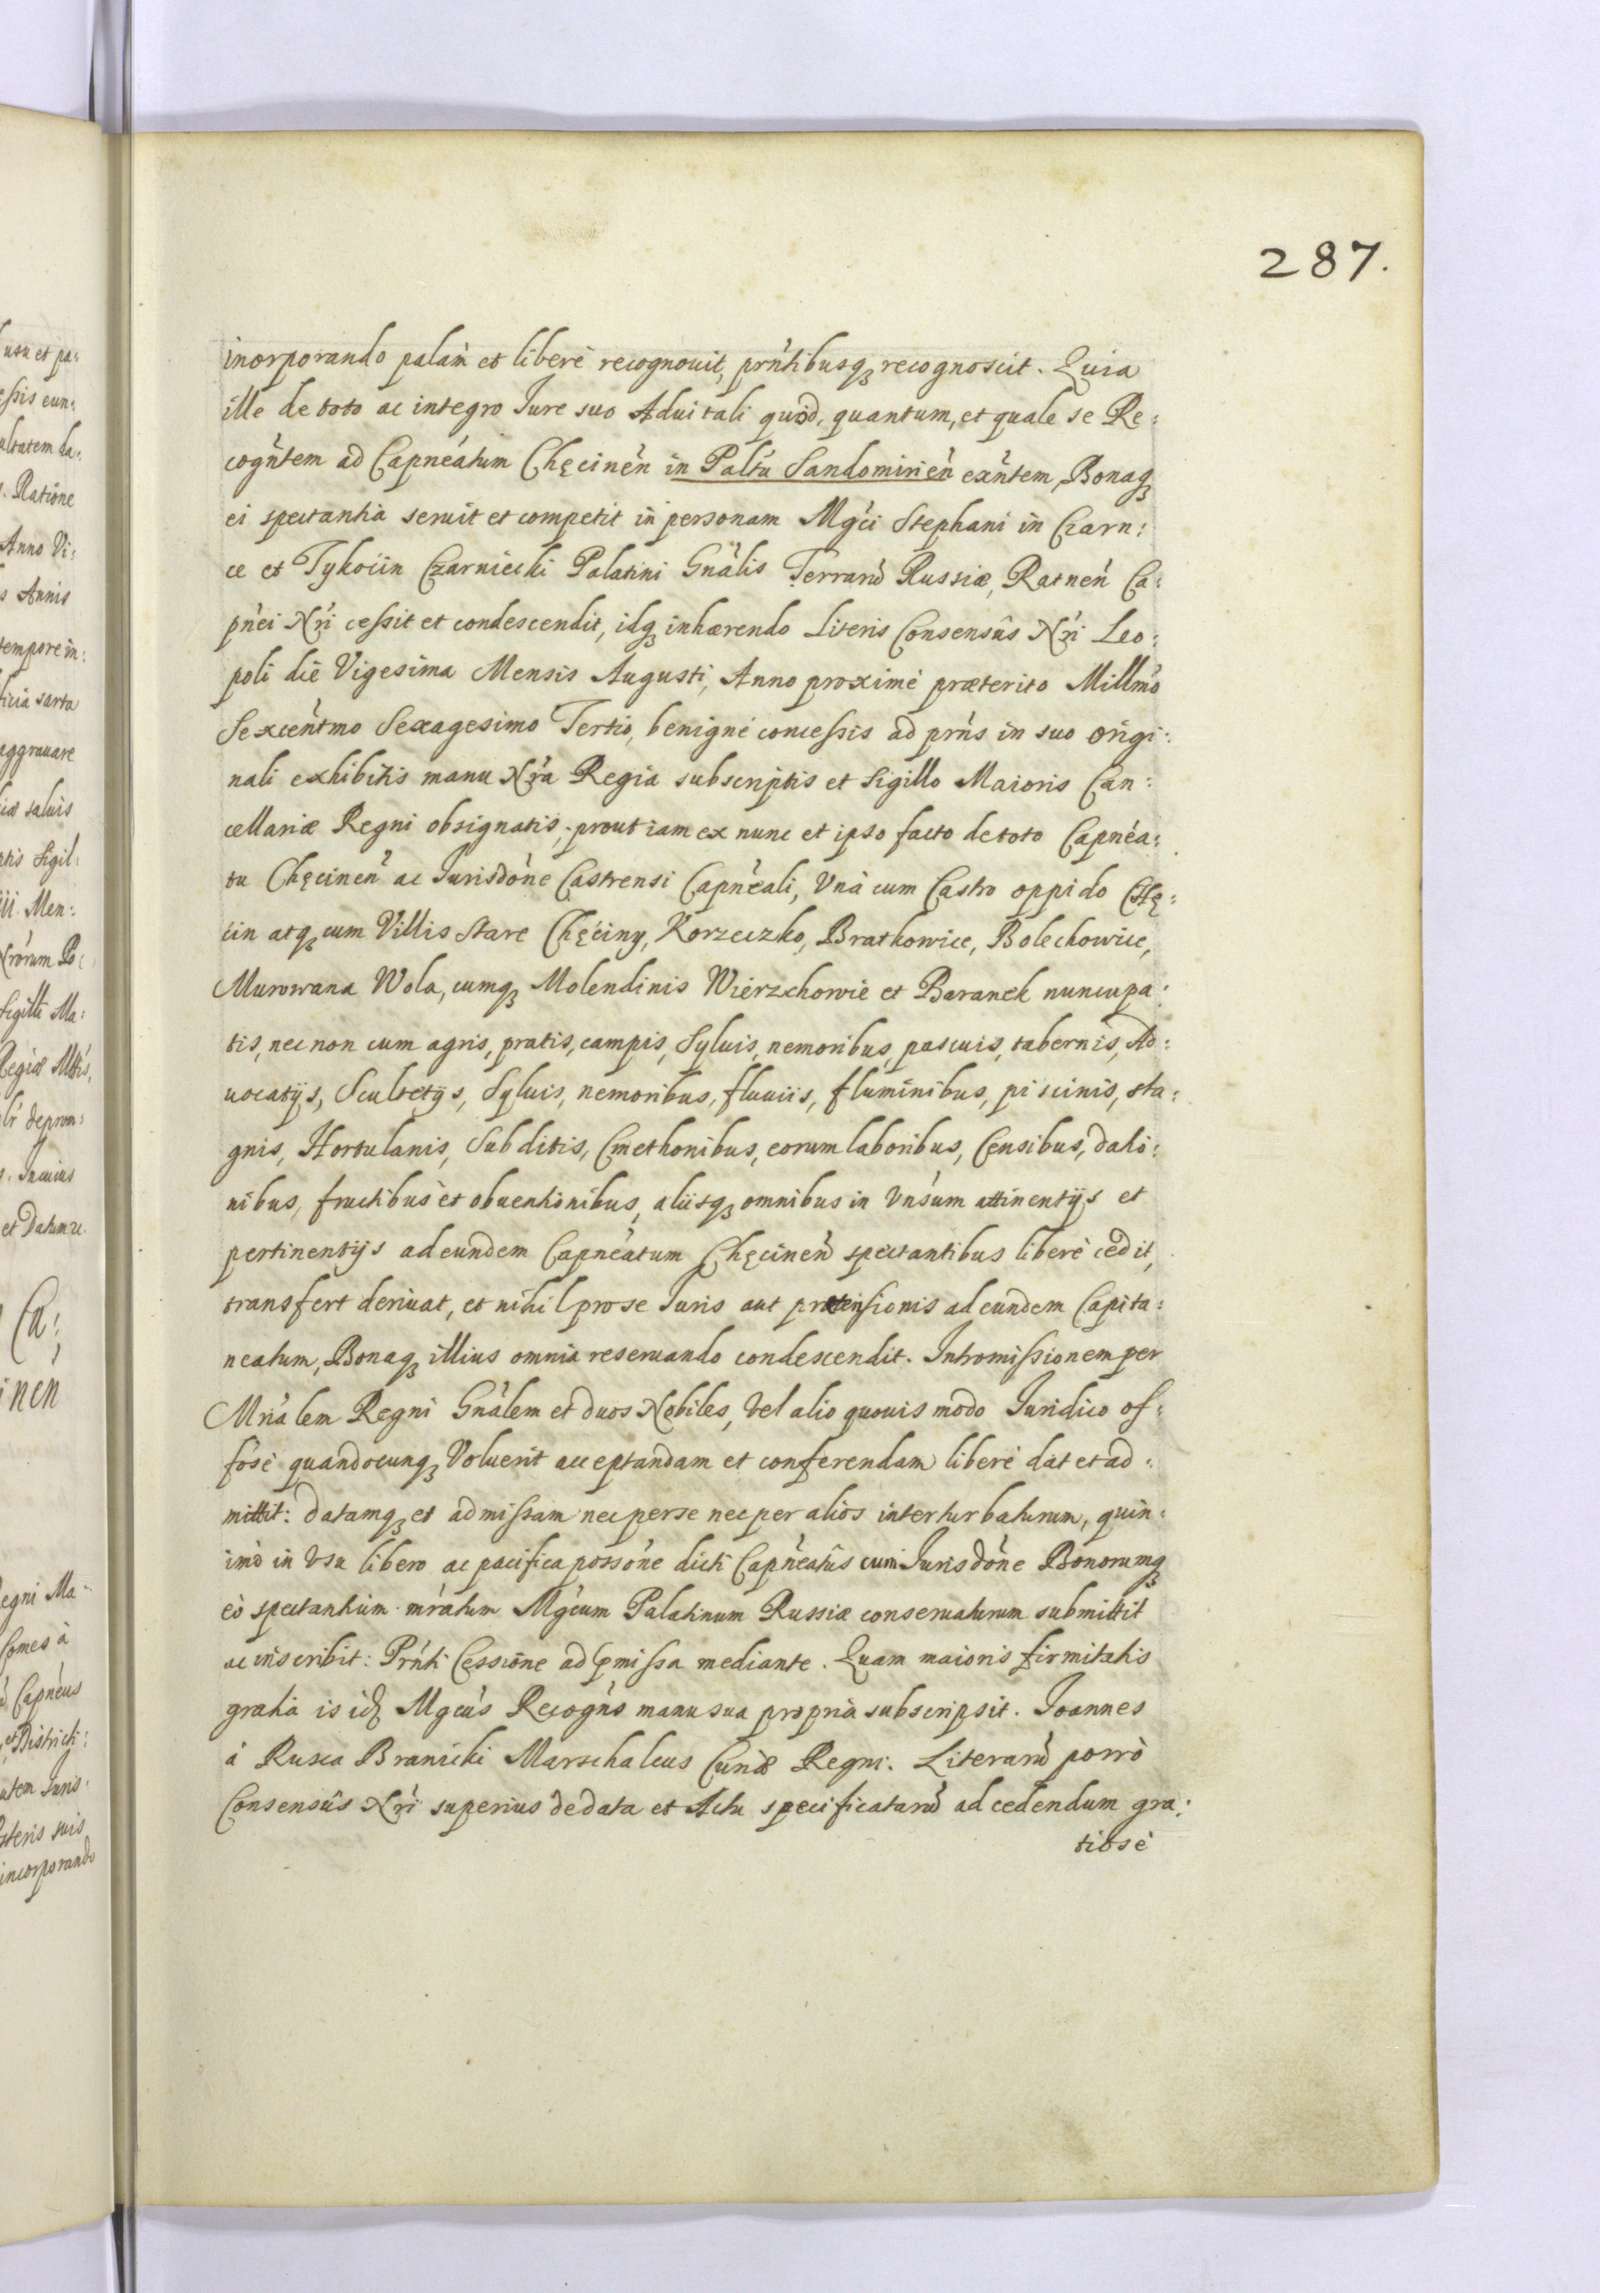 287.
inorporando palam et liberè recognouit, prñtibusq₃ recognoscit. Quia
ille de toto ac integro Jure suo Aduitali quod, quantum, et quale se Re:
cogñtem ad Capneátum Chęcineń in Paltu Sandomirień exñtem, Bonaq₃
ei spectantia seruit et competit in personam Mgći Stephani in Czarn:
ce et Tykocin Czarniecki Palatini Gnális Terrarũ Russiæ, Ratneń Ca:
pńei Nri cessit et condescendit, idq₃ inhærendo Literis Consensûs Nri Leo:
poli die Vigesima Mensis Augusti, Anno proximè præterito Millmo
Sexcentmo Sexagesimo Tertio, benignè concessis ad prńs in suo origi:
nali exhibitis manu Nra Regia subscriptis et Sigillo Maioris Can:
cellariæ Regni obsignatis, prout iam ex nunc et ipso facto de toto Capnéa:
tu Chęcineń ac Jurisdóne Castrensi Capnéali, Vnà cum Castro oppido Chę:
cin atq₃ cum Villis Stare Chęciny, Korzeczko, Bratkowice, Bolechowice,
Murowana Wola, cumq₃ Molendinis Wierzchowie et Baranek nuncupa:
tis, nec non cum agris, pratis, campis, Syluis, nemoribus, pascuis, tabernis, Ad:
uocatijs, Scultetijs, Syluis, nemoribus, fluuiis, fluminibus, piscinis, sta:
gnis, Hortulanis, Subditis, Cmethonibus, eorum laboribus, Censibus, dati:
nibus, fructibus et obuentionibus, aliisq₃ omnibus in Vnśum attinentijs et
pertinentijs ad eundem Capneátum Chęcineń spectantibus liberè cedit,
transfert deriuat, et nihil pro se Juris aut prætensionis ad eundem Capita:
neatum, Bonaq₃ illius omnia reseruando condescendit. Intromissionem per
Mriálem Regni Gnálem et duos Nobiles, vel alio quouis modo Juridico of:
fosè quandocunq₃ Voluerit acceptandam et conferendam liberè dat et ad:
mittit: datamq₃ et admissam nec per se nec per alios interturbaturum, quin:
imò in Vsu libero ac pacifica possóne dicti Capnéatûs cum Jurisdóne Bonorumq₃
eò spectantium mrátum Mgćum Palatinum Russiæ conseruaturum submittit
ac inscribit: Prńti Cessione ad pmissa mediante. Quam maioris firmitatis
gratia is id₃ Mgcus Recogńs manu sua propria subscripsit. Joannes
à Rusca Branicki Marschalcus Curiæ Regni. Literarũ porrò
Consensûs Nri superius de data et Actu specificatarũ ad cedendum gra:
tiosè